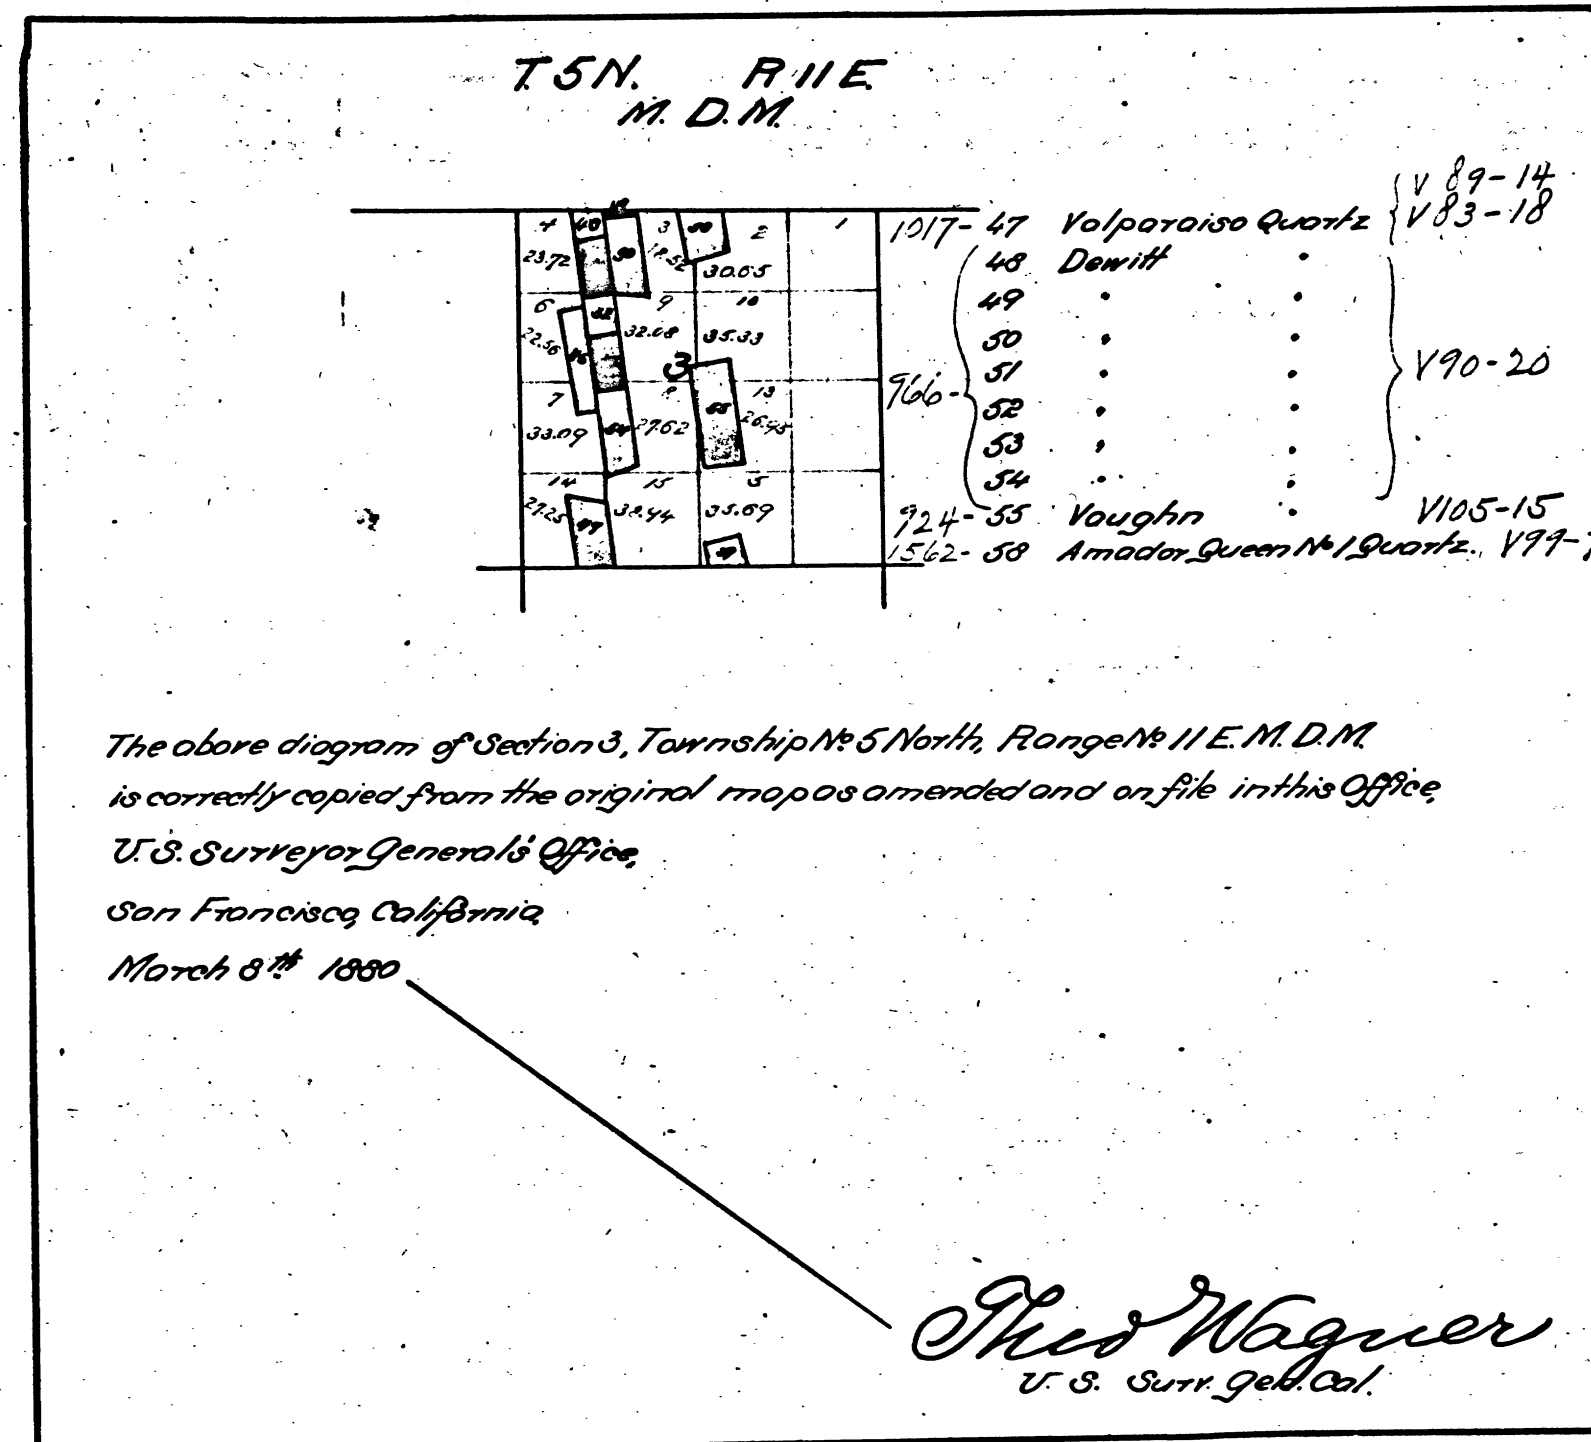 T.5N. R 11 E.
M. D. M.
4 48 3 50 2 1
23.72 50 30.65
6 52 9 10
22.56 32.08 35.33
3
7 8 13
33.09 54 27.62 55 26.95
14 15 5
27.25 38.44 35.69
1017- 47 Valparaiso Quartz { V 89-14
V 83-18
48 Dewitt "
49 " "
50 " "
966- 51 " " V90-20
52 " "
53 " "
54 " "
924- 55 Vaughn " V105-15
1562- 58 Amador Queen No 1 Quartz. V99-
The above diagram of Section 3, Township No 5 North, Range No 11 E. M. D. M.
is correctly copied from the original map as amended and on file in this Office,
U. S. Surveyor General's Office,
San Francisco, California,
March 8th 1880
Theo Wagner
U. S. Surv. Gen. Cal.